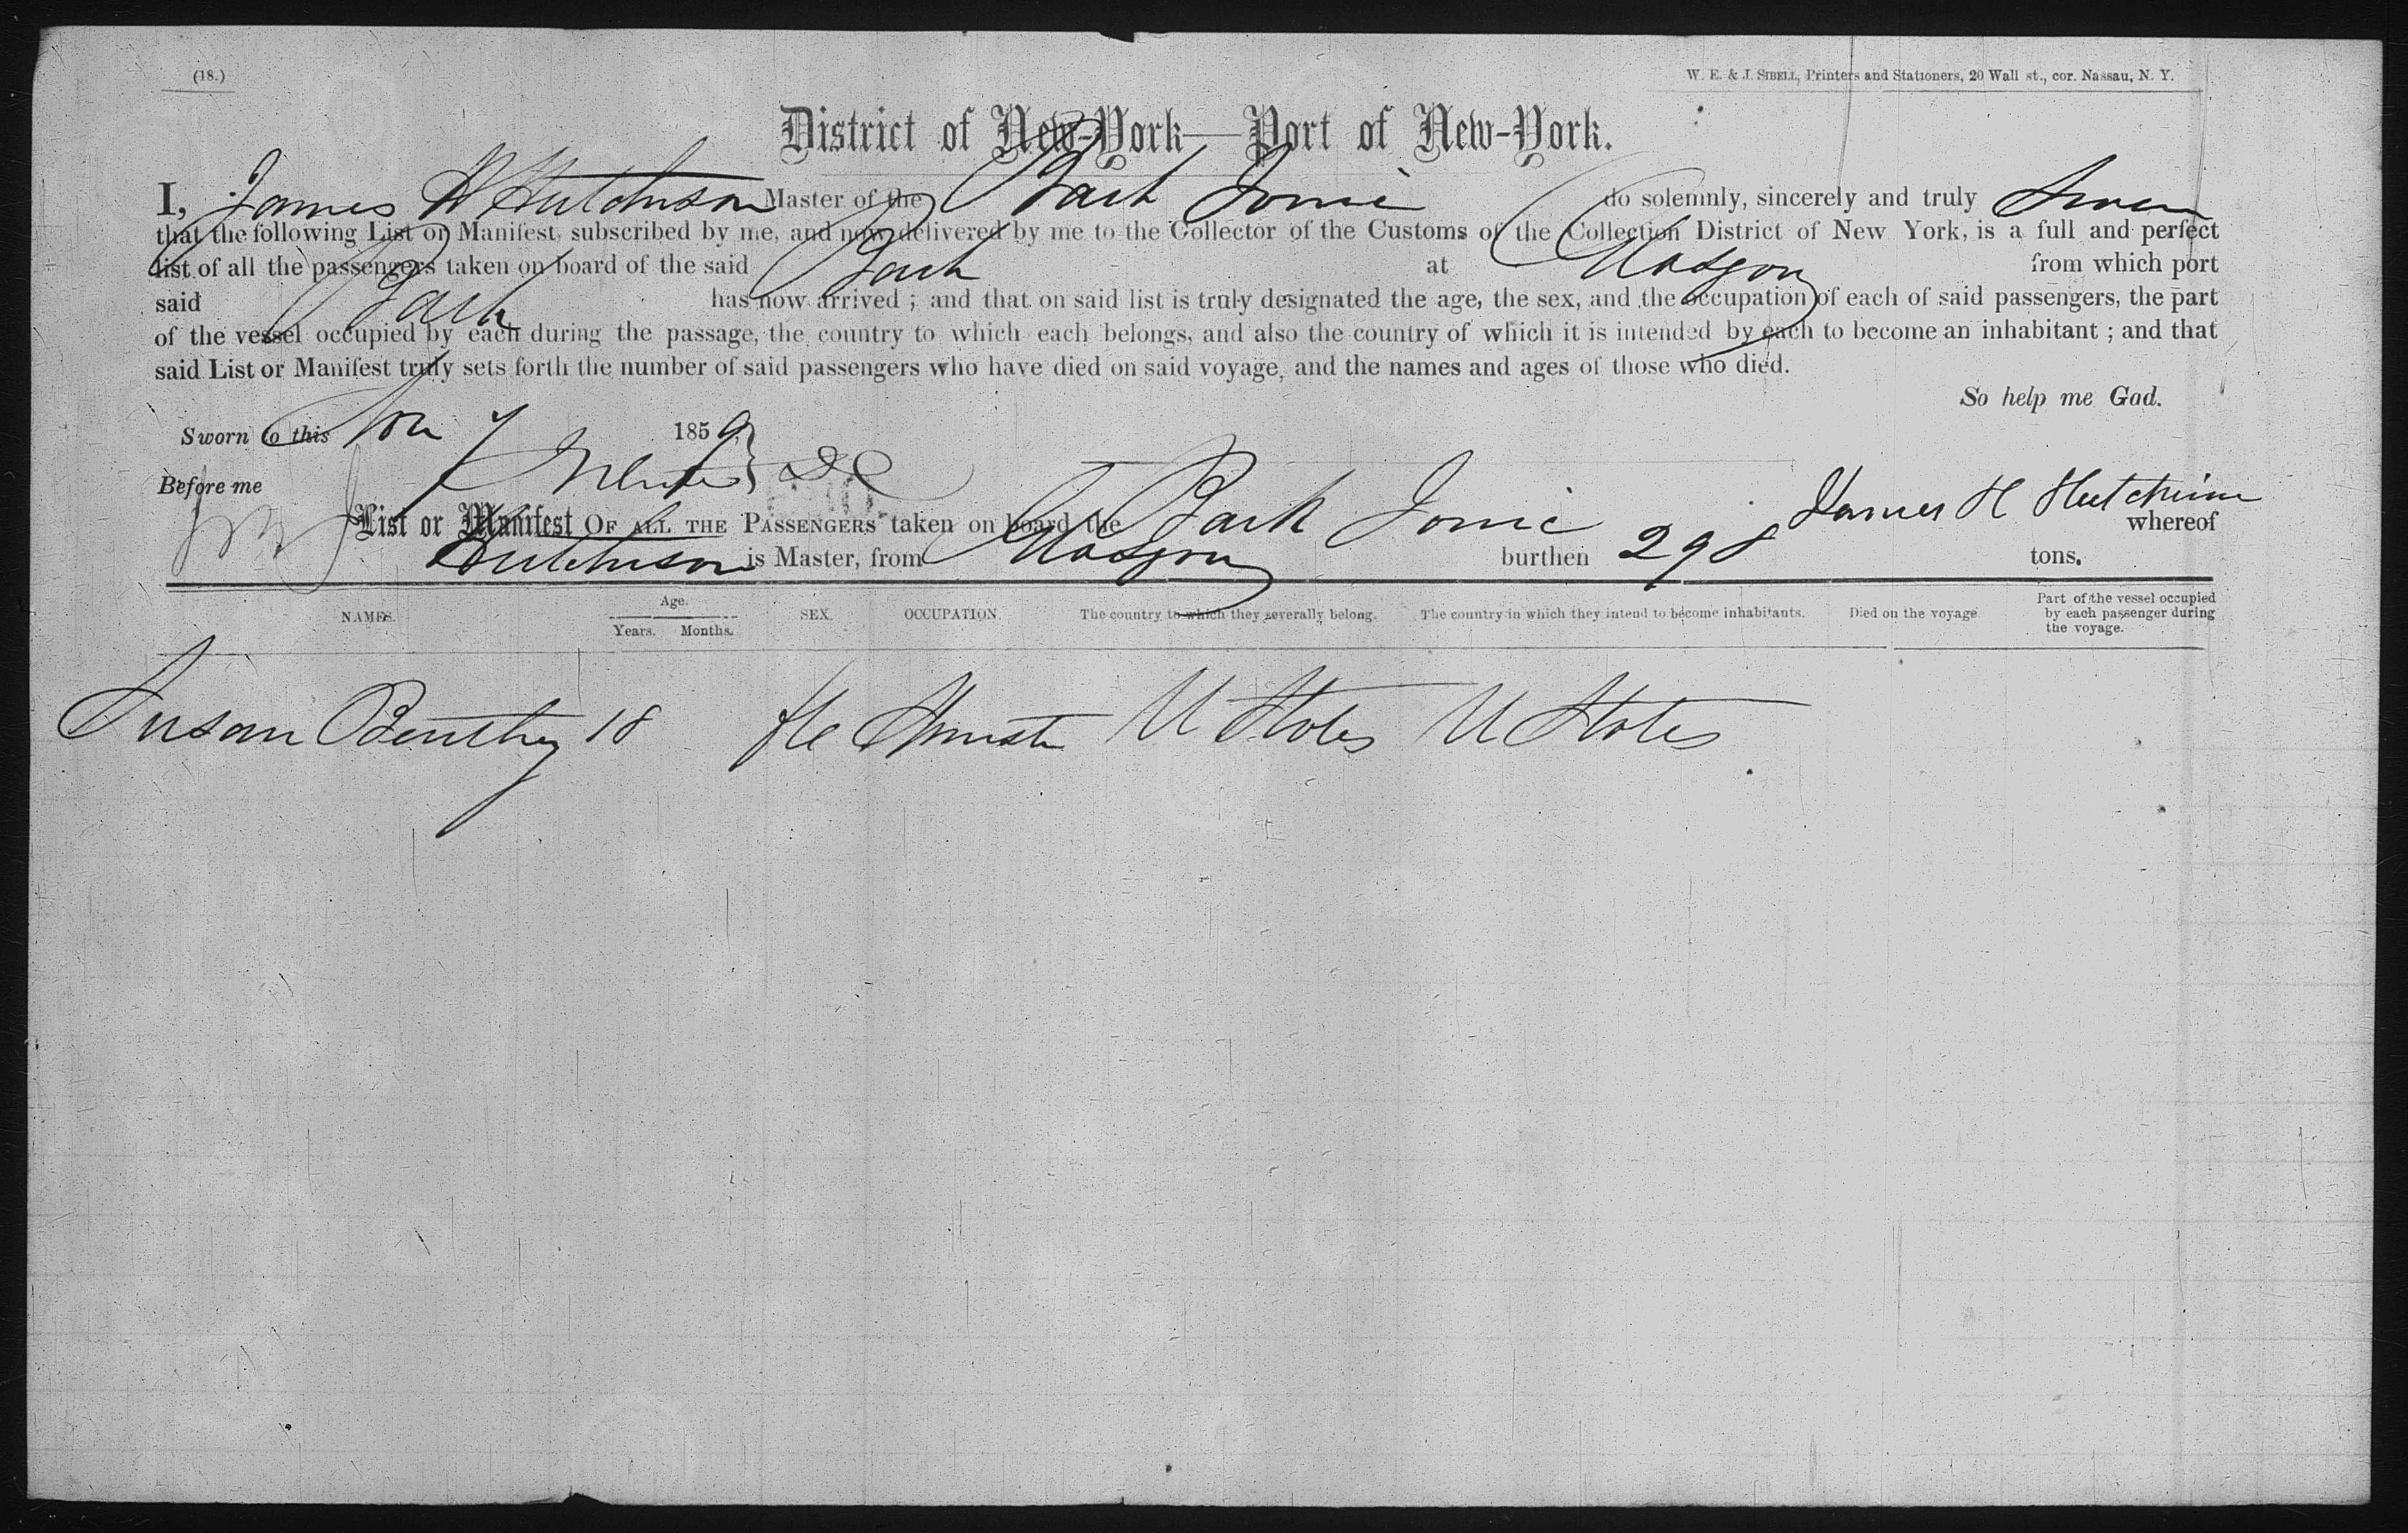 (18.)
W. E. & J. SIBELL, Printers and Stationers, 20 Wall st., cor. Nassau, N. Y.
District of New-York—Port of New-York.
I, James H Hutchison Master of the Bark Ionic do solemnly, sincerely and truly Swear
that the following List or Manifest, subscribed by me, and now delivered by me to the Collector of the Customs of the Collection District of New York, is a full and perfect
list of all the passengers taken on board of the said Bark at Glasgow from which port
said Bark has now arrived ; and that on said list is truly designated the age, the sex, and the occupation of each of said passengers, the part
of the vessel occupied by each during the passage, the country to which each belongs, and also the country of which it is intended by each to become an inhabitant ; and that
said List or Manifest truly sets forth the number of said passengers who have died on said voyage, and the names and ages of those who died.
So help me Gad.
Sworn to this Nov 7 1859,
Before me
James H Hutchison
List or Manifest OF ALL THE PASSENGERS taken on board the Bark Ionic whereof
Hutchison is Master, from Glasgow burthen 298 tons.
NAMES. Age. Years. Months. SEX. OCCUPATION. The country to which they severally belong. The country in which they intend to become inhabitants. Died on the voyage Part of the vessel occupied by each passenger during the voyage.
Susan 18 fle U States U States